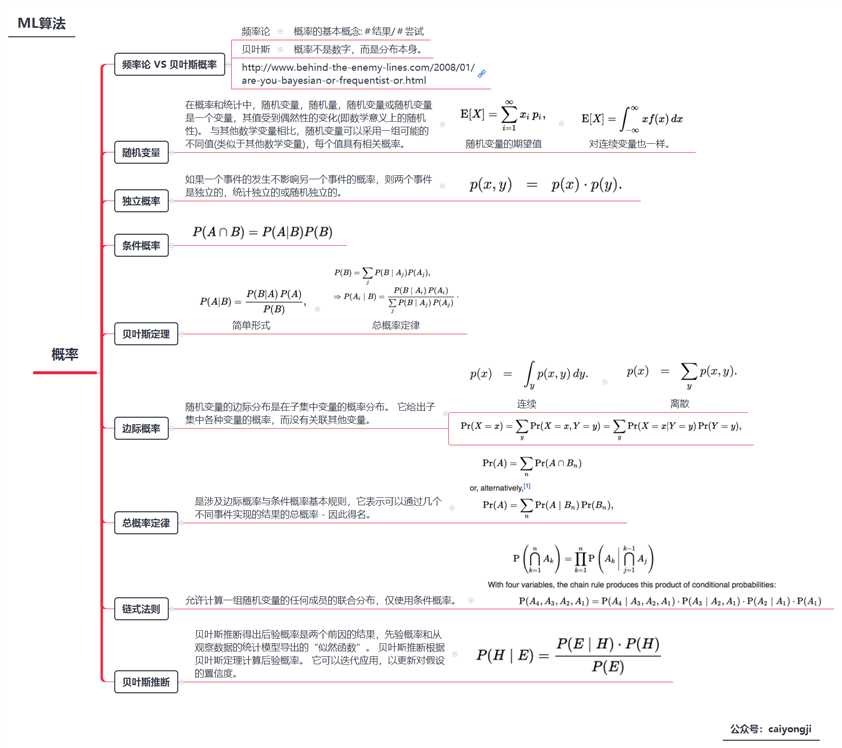 ML算法
频率论 VS 贝叶斯概率
频率论
概率的基本概念: #结果/ #尝试
贝叶斯
概率不是数字，而是分布本身。
http://www.behind-the-enemy-lines.com/2008/01/
are-you-bayesian-or-frequentist-or.html
随机变量
在概率和统计中，随机变量，随机量，随机变量或随机变量
是一个变量，其值受到偶然性的变化(即数学意义上的随机
性)。 与其他数学变量相比，随机变量可以采用一组可能的
不同值(类似于其他数学变量)，每个值具有相关概率。
E[X] = ∑_{i=1}^{∞} x_i p_i,
随机变量的期望值
E[X] = ∫_{-∞}^{∞} xf(x) dx
对连续变量也一样。
独立概率
如果一个事件的发生不影响另一个事件的概率，则两个事件
是独立的，统计独立的或随机独立的。
p(x, y) = p(x) · p(y).
条件概率
P(A ∩ B) = P(A|B)P(B)
贝叶斯定理
P(A|B) = P(B|A) P(A) / P(B),
简单形式
P(B) = ∑_j P(B | A_j)P(A_j),
⇒ P(A_i | B) = P(B | A_i) P(A_i) / ∑_j P(B | A_j) P(A_j) .
总概率定律
概率
边际概率
随机变量的边际分布是在子集中变量的概率分布。 它给出子
集中各种变量的概率，而没有关联其他变量。
p(x) = ∫_y p(x, y) dy.
连续
p(x) = ∑_y p(x, y).
离散
Pr(X = x) = ∑_y Pr(X = x, Y = y) = ∑_y Pr(X = x|Y = y) Pr(Y = y),
总概率定律
是涉及边际概率与条件概率基本规则，它表示可以通过几个
不同事件实现的结果的总概率 - 因此得名。
Pr(A) = ∑_n Pr(A ∩ B_n)
or, alternatively,[1]
Pr(A) = ∑_n Pr(A | B_n) Pr(B_n),
链式法则
允许计算一组随机变量的任何成员的联合分布，仅使用条件概率。
P(⋂_{k=1}^{n} A_k) = ∏_{k=1}^{n} P(A_k | ⋂_{j=1}^{k-1} A_j)
With four variables, the chain rule produces this product of conditional probabilities:
P(A_4, A_3, A_2, A_1) = P(A_4 | A_3, A_2, A_1) · P(A_3 | A_2, A_1) · P(A_2 | A_1) · P(A_1)
贝叶斯推断
贝叶斯推断得出后验概率是两个前因的结果，先验概率和从
观察数据的统计模型导出的“似然函数”。 贝叶斯推断根据
贝叶斯定理计算后验概率。 它可以迭代应用，以更新对假设
的置信度。
P(H | E) = P(E | H) · P(H) / P(E)
公众号：caiyongji